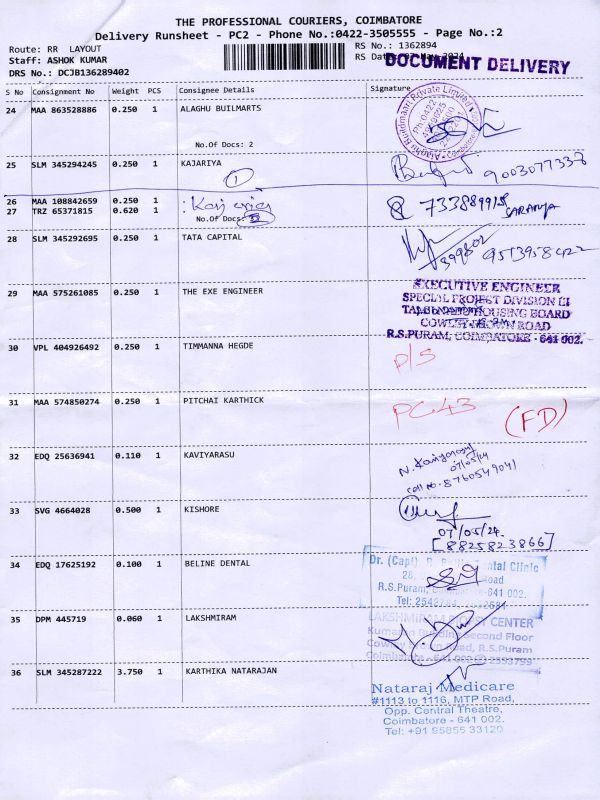 THE PROFESSIONAL COURIERS, COIMBATORE
Delivery Runsheet - PC2 - Phone No.:0422-3505555 - Page No.:2
Route: RR LAYOUT
Staff: ASHOK KUMAR
DRS No.: DCJB136289402
RS No.: 1362894
RS Date: 07 May 2024
DOCUMENT DELIVERY
S No Consignment No Weight PCS Consignee Details Signature
24 MAA 863528886 0.250 1 ALAGHU BUILMARTS
No.Of Docs: 2
25 SLM 345294245 0.250 1 KAJARIYA
1
9003077337
26 MAA 108842659 0.250 1
27 TRZ 65371815 0.620 1
No.Of Docs:
SARANYA
28 SLM 345292695 0.250 1 TATA CAPITAL
9513958422
29 MAA 575261085 0.250 1 THE EXE ENGINEER
EXECUTIVE ENGINEER
SPECIAL PROJECT DIVISION III
TAMILNADU HOUSING BOARD
COWLEY BROWN ROAD
R.S.PURAM, COIMBATORE - 641 002.
30 VPL 404926492 0.250 1 TIMMANNA HEGDE
D/S
31 MAA 574850274 0.250 1 PITCHAI KARTHICK
PC43 (FD)
32 EDQ 25636941 0.110 1 KAVIYARASU
07/05/24
cell no: 8760549041
33 SVG 4664028 0.500 1 KISHORE
07/05/24.
[8825823866]
34 EDQ 17625192 0.100 1 BELINE DENTAL
Dr. (Capt) Dental Clinic
28, Road
R.S.Puram, Coimbatore-641 002.
Tel:
35 DPM 445719 0.060 1 LAKSHMIRAM
LAKSHMIRAM CENTER
Kumaran Building, Second Floor
Cowley Brown Road, R.S.Puram
Coimbatore - 641 002
36 SLM 345287222 3.750 1 KARTHIKA NATARAJAN
Nataraj Medicare
#1113 to 1116, MTP Road,
Opp. Central Theatre,
Coimbatore - 641 002.
Tel: +91 95855 33120